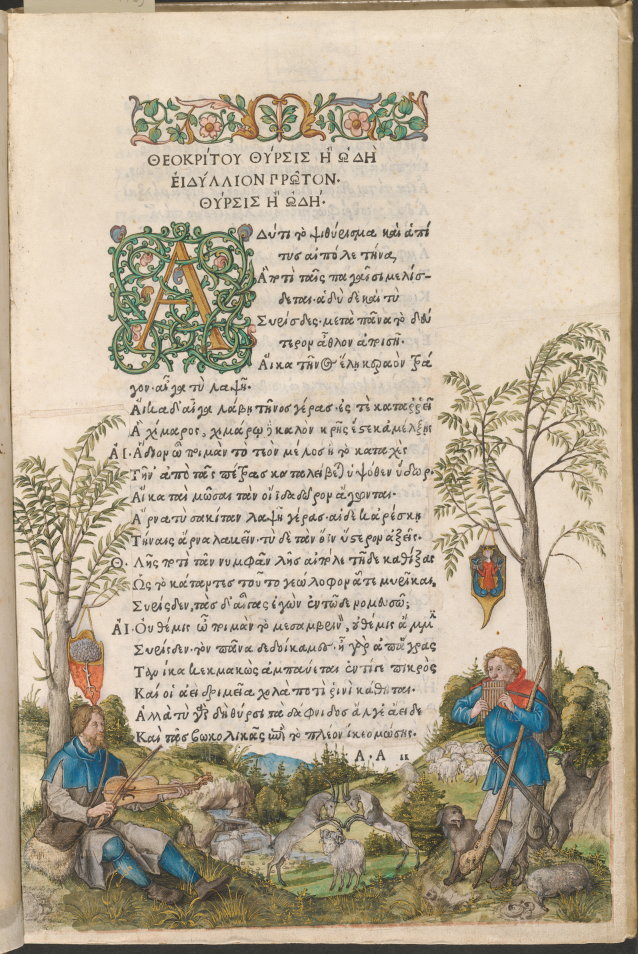 ΘΕΟΚΡΙΤΟΥ ΘΥΡΣΙΣ Ἢ ὨΔῊ
ΕἸΔΥΛΛΙΟΝ ΠΡΩ͂ΤΟΝ.
ΘΥΡΣΙΣ Ἢ ὨΔΗ´.
Αδύ τι τὸ ψιθύρισμα καὶ ἁ πί
τυς αἰπόλε τήνα,
Ἃ ποτὶ ταῖς παγαῖσι μελίσ-
δεται. ἁδὺ δὲ καὶ τὺ
Συρίσδες. μετὰ πᾶνα τὸ δεύ
τερον ἆθλον ἀποισῇ.
Αἴκα τῆνος ἕλῃ κεραὸν τρά
γον. αἶγα τὺ λαψῇ.
Αἴκα δ' αἶγα λάβῃ τῆνος γέρας. ἐς τὲ καταρρεῖ
Ἁ χίμαρος, χιμάρω καλὸν κρῆς ἔστε κ' ἀμέλξῃς
ΑΙ. Ἅδιον ὦ ποιμὰν τὸ τεὸν μέλος ἢ τὸ καταχὲς
Τῆν' ἀπὸ τᾶς πέτρας καταλείβεται ὑψόθεν ὕδωρ.
Αἴκα ταὶ μῶσαι τὰν οἴιδα δῶρον ἄγωνται.
Ἄρνα τὺ σακίταν λαψῇ γέρας. αἰ δέ κ' ἀρέσκῃ
Τήναις ἄρνα λαβεῖν. τὺ δὲ τὰν ὄϊν ὕστερον ἀξεῖς.
Θ. Λῇς ποτὶ τᾶν νυμφᾶν λῇς αἰπόλε τῇδε καθίξας
Ὡς τὸ κάταντες τοῦτο γεώλοφον ἅτε μυρίκαι,
Συρίσδεν, τὰς δ' αἶγας ἐγὼν ἐν τῷδε νομευσῶ;
ΑΙ. Οὐ θέμις ὦ ποιμὰν τὸ μεσαμβρινὸν, οὐ θέμις ἄμμιν
Συρίσδεν. τὸν πᾶνα δεδοίκαμες. ἦ γὰρ ἀπ' ἄγρας
Τανίκα κεκμακὼς ἀμπαύεται ἐντί γε πικρὸς
Καί οἱ ἀεὶ δριμεῖα χολὰ ποτὶ ῥινὶ κάθηται.
Ἀλλὰ τὺ γὰρ δὴ θύρσι τὰ δάφνιδος ἄλγε' ἄειδε
Καὶ τᾶς βωκολικᾶς ἐπὶ τὸ πλέον ἵκεο μώσης.
Α.Α ii